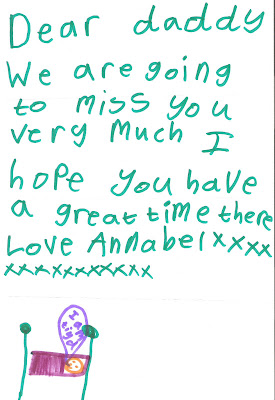 Dear daddy
We are going
to miss you
very much I
hope you have
a great time there
Love Annabel xxxx
xxxxxxxxxxx